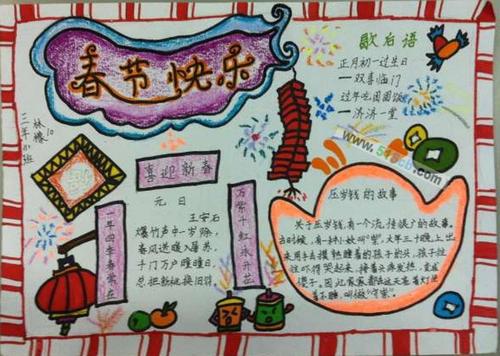 春节快乐
歇后语
正月初一过生日
—双喜临门
过年吃团圆饭
—济济一堂
喜迎新春
元日
王安石
爆竹声中一岁除,
春风送暖入屠苏。
千门万户瞳瞳日,
总把新桃换旧符。
一年四季春常在
万紫千红永开花
压岁钱的故事
关于压岁钱,有一个流传很广的故事。
古时候,有一种小妖叫"祟",大年三十晚上出
来用手去摸熟睡着的孩子的头,孩子往
往吓得哭起来,接着头疼发热,变成
傻子,因此,家家都在这天亮着灯坐
着不睡,叫做"守祟"。